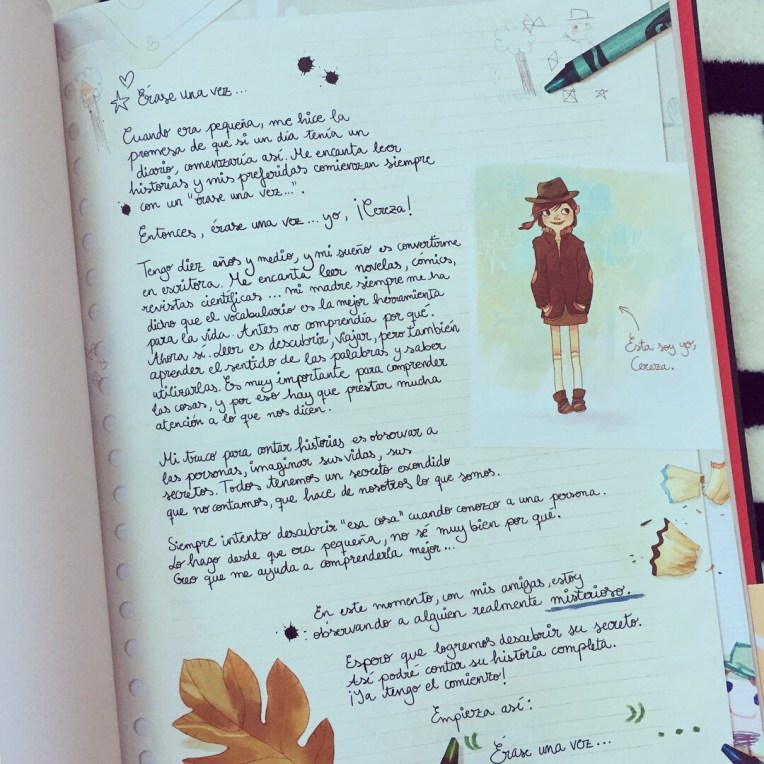 Érase una vez...
Cuando era pequeña, me hice la
promesa de que si un día tenía un
diario, comenzaría así. Me encanta leer
historias y mis preferidas comienzan siempre
con un "érase una vez...".
Entonces, érase una vez... yo, ¡Cereza!
Tengo diez años y medio, y mi sueño es convertirme
en escritora. Me encanta leer novelas, cómics,
revistas científicas... mi madre siempre me ha
dicho que el vocabulario es la mejor herramienta
para la vida. Antes no comprendía por qué.
Ahora sí. Leer es descubrir, viajar, pero también
aprender el sentido de las palabras y saber
utilizarlas. Es muy importante para comprender
las cosas, y por eso hay que prestar mucha
atención a lo que nos dicen.
Esta soy yo,
Cereza.
Mi truco para contar historias es observar a
las personas, imaginar sus vidas, sus
secretos. Todos tenemos un secreto escondido
que no contamos, que hace de nosotros lo que somos.
Siempre intento descubrir "esa cosa" cuando conozco a una persona.
Lo hago desde que era pequeña, no sé muy bien por qué.
Creo que me ayuda a comprenderla mejor...
En este momento, con mis amigas, estoy
observando a alguien realmente misterioso.
Espero que logremos descubrir su secreto.
Así podré contar su historia completa.
¡Ya tengo el comienzo!
Empieza así:
« Érase una vez... »...